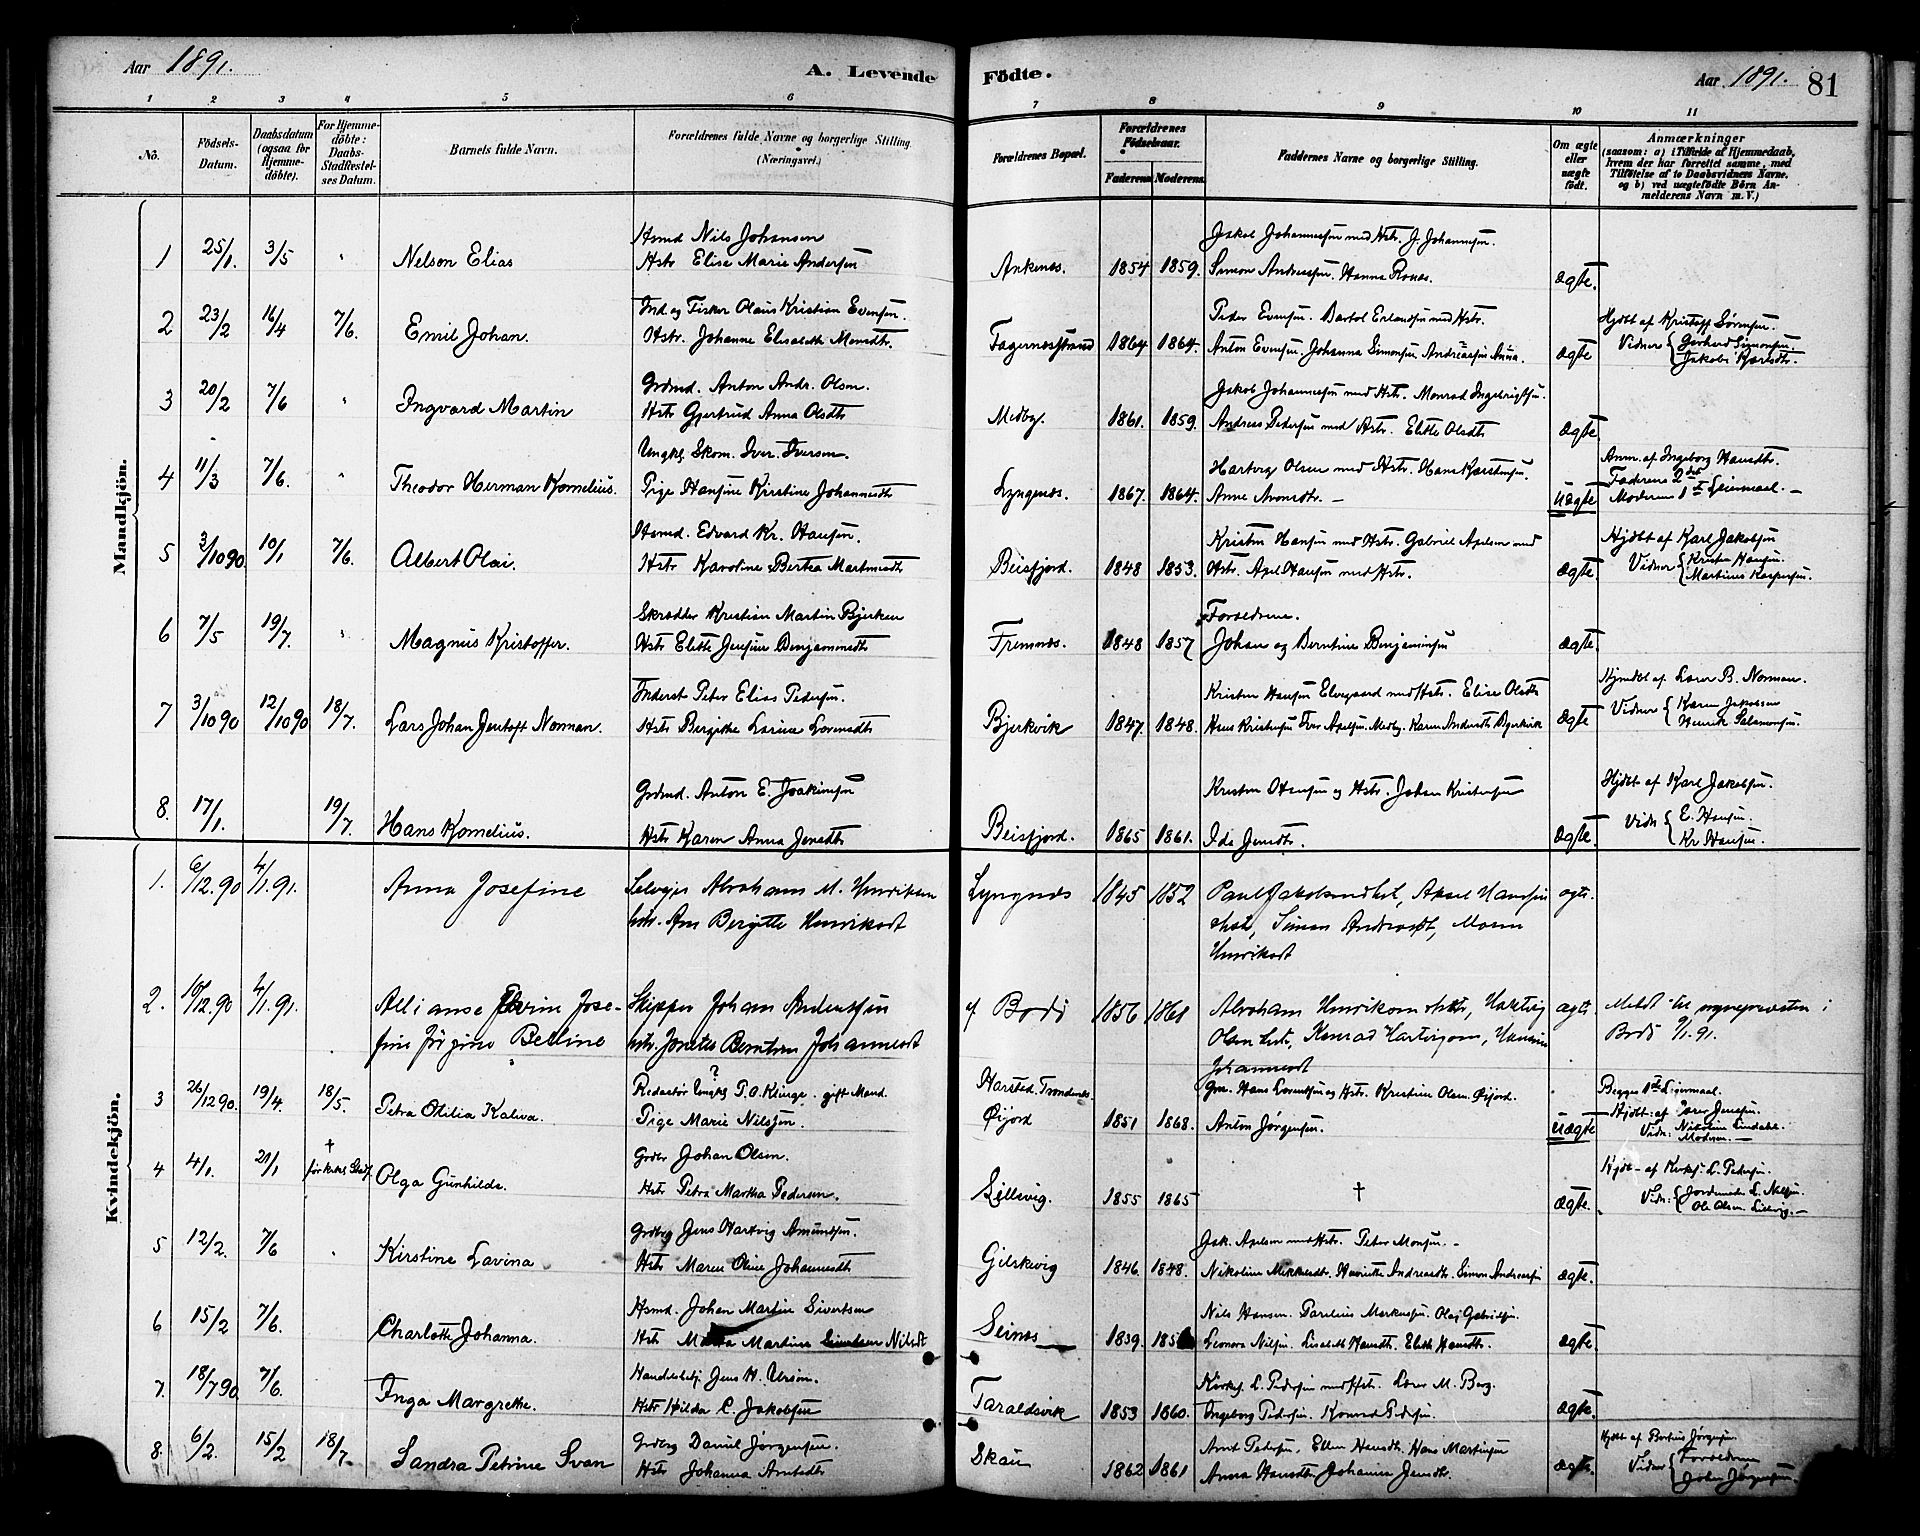 Aar 1891.
A. Levende Födte.
Aar 1891. 81
1 2 3 4 5 6 7 8 9 10 11
No.
Födsels-Datum.
Daabsdatum (ogsaa for Hjemme-döbte).
For Hjemme-döbte: Daabs-Stadfestel-ses Datum.
Barnets fulde Navn.
Forældrenes fulde Navne og borgerlige Stilling. (Næringsvei.)
Forældrenes Bopæl.
Forældrenes Födselsaar.
Faderens Moderens
Faddernes Navne og borgerlige Stilling.
Om ægte eller uægte födt.
Anmærkninger
(saasom: a) i Tilfælde af Hjemmedaab,
hvem der har forrettet samme, med
Tilföielse af to Daabsvidners Navne,
og b) ved uægtefödte Börn An-
melderens Navn m. V.)
Mandkjön.
Hsmd Nils Johansen Jakob Johannessen med Hstr. J. Johannesen.
1 25/1. 3/5 " Nelson Elias Hstr Elise Marie Andersen Ankenes. 1854 1859. Simon Andreassen. Hanna Ronæs. ægte.
Ind og Fisker Olaus Kristian Evensen. Peder Evensen. Bartol Erlandsen med Hstr. Hjdbt af Kristoff Sørensen.
2 23/2 16/4 7/6. Emil Johan. Hstr. Johanne Elisabeth Monsdtr. Fagernesstrand 1864 1864. Anton Evensen. Johanna Simonsen Andreasen Anna. ægte Vidner { Gerhard Simonsen.
Jakobi Karlsdtr.
Grdmd. Anton Andr. Olsen. Jakob Johannessen med Hstr. Monrad Ingebrigtsen.
3 20/2 7/6 " Ingvard Martin Hstr Gjertrud Anna Olsdtr Medby. 1861. 1859. Andreas Pedersen med Hstr. Elitte Olsdtr ægte.
Ungkl. Skom. Iver Iversen. Hartvig Olsen med Hstr. Hans Karstensen. Anm. af Ingeborg Hansdtr.
4 11/3 7/6. " Theodor Herman Kornelius. Pige Hansine Kirstine Johannesdtr Lyngenes. 1867. 1864. Anne Aronsdtr. — Uægte Faderens 2det
Moderens 1ste Leiermaal. —
Hsmd. Edvard Kr. Hansen. Kristen Hansen med Hstr. Gabriel Axelsen med Hjdbt af Karl Jakobsen
5 3/10 90 10/1 7/6. Albert Olai. Hstr Karoline Bertea Martinusdtr Beisfjord. 1848 1853. Hstr. Axel Hansen med Hstr. ægte. Vidner { Kristen Hansen.
Martinus Kaspersen.
Skrædder Kristian Martin Bjerken Forældrene.
6 7/5 19/7. " Magnus Kristoffer. Hstr Elitte Jensine Benjaminsdtr Fremnes. 1848 1857 Johan og Berntine Benjaminsen ægte.
Inderst Peter Elias Pedersen. Kristen Hansen Elvegaard med Hstr. Elise Olsdtr Hjmdbt af Lærer B. Norman.
7 3/10 90 12/10 90 18/7. Lars Johan Jentoft Norman. Hstr Birgithe Larine Lorensdtr Bjerkvik 1847. 1848. Hans Kristensen Iver Axelsen. Medby. Karen Andersdtr Bjerkvik ægte Vidner { Karen Jakobsen
Henrik Salamonsen.
Grdmd. Anton E. Joakimsen Kristen Hansen og Hstr. Johan Kristensen Hjdbt af Karl Jakobsen.
8. 17/1. 19/7. Hans Kornelius. Hstr Karen Anna Jensdtr Beisfjord. 1865 1861. Ida Jensdtr. ægte. Vidn { E. Hansen.
Kr Hansen.
Kvindekjön.
1. 6/12.90 4/1.91. Anna Josefine Selveier Abraham M. Henriksen Lyngnes 1845 1852 Paul Jakobsen, Aksel Hansen ægte.
Ane Bergitte Henriksdt Simon Andreasdt, Maren
Henriksdt
2. 10/12.90 4/1.91. Allianse Jose- Skipper Johan Andersen af Bodö 1856 1861 Abraham Henriksen, Hartvig ægte Meldt til sognepresten i
fine Jörgine Berline Berntine Johannesdt Olsen, Konrad Hartvigsen, Bodö 9/1.91.
Johannesdt
Redaktør Ungkl? P. O. Klinge. gift Mand. Harsted. Trondenes. Grm. Hans Lorentsen og Hstr. Kristine Olsen. Øijord. Begges 1ste Leiermaal.
3 26/12 90. 19/4. 18/5. Petra Otilia Kaliva. Pige Marie Nilssen. Øijord 1851 1868. Anton Jørgensen. Uægte Hjdbt: af Jensen.
Vidn: Nikoline Lindahl.
Moderen. —
Grdbr Johan Olsen. Hjdbt — af Kirkes: L. Pedersen.
4 4/1. 21/1 † før Stadf. Olga Gunhilde. Hstr Petra Martha Pedersen. Lillevig. 1855 1865 † ægte. Vidn: { Jordemoder L. Nilsen.
Ole Olsen Lillevig. —
Grdbrg Jens Hartvig Amundsen. Jak. Axelsen med Hstr. Peter Monsen. —
5 12/2. 7/6 " Kirstine Lavina Hstr Maren Oline Johannesdtr Gilskevig 1846. 1848. Nikoline Mikkelsdtr. Henriette Andreasdtr. Simon Andreasen ægte.
Hsmd. Johan Martin Sivertsen Nils Hansen. Parelius Markussen. Olaf Gabrielsen.
6 15/2 7/6. Charlotte Johanna. Hstr Martine Nilsdt Seines 1839. Leonora Nilsen. Lisabeth Hansdtr. Elitte Hansdtr. ægte.
Handelsbetj Jens H. Ursin. Kirkes. L. Pedersen med Hstr. Lærer M. Berg.
7. 18/7 90 7/6. Inga Margrethe. Hstr Hilda C. Jakobsen Taraldsvik 1853 1860. Ingeborg Pedersen. Konrad Pedersen. ægte.
Grdbrg Daniel Jørgensen. Arnt Pedersen. Ellen Hansdtr. Hans Martinsen Hjdbt af Bertius Jørgensen.
8. 6/2. 15/2 18/7. Sandra Petrine Svan Hstr Johanna Arntsdtr Skau 1862 1861 Anna Hansdtr Johanna Jensdtr. ægte. Vidner { Forældrene
John Jørgensen.